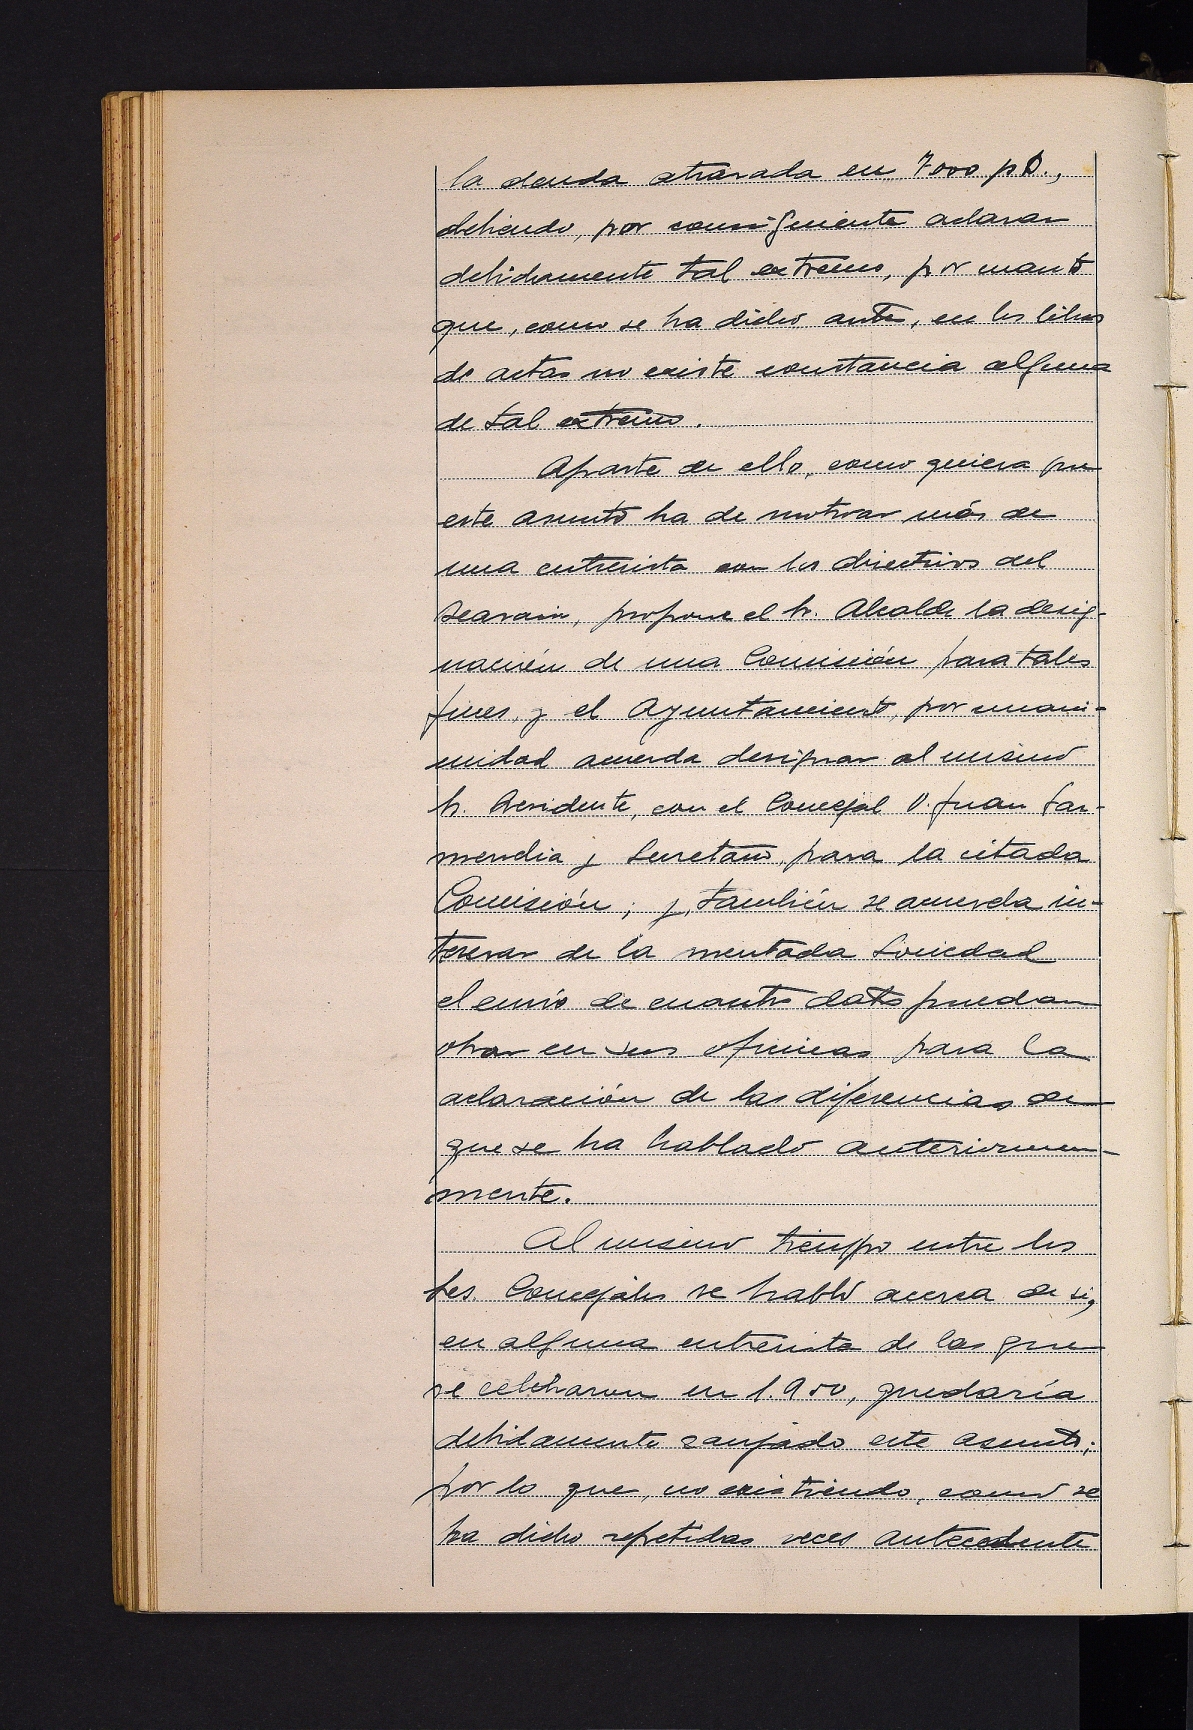 la deuda atrasada en 7000 pts.,
debiendo, por consiguiente aclarar
debidamente tal extremo, por cuanto
que, como se ha dicho antes, en los libros
de actas no existe constancia alguna
de tal extremo.
Aparte de ello, como quiera que
este asunto ha de motivar más de
una entrevista con los directivos del
Beasain, propone el Sr. Alcalde la desig-
nación de una Comisión para tales
fines, y el Ayuntamiento, por unani-
midad acuerda designar al mismo
Sr. Presidente, con el Concejal D. Juan Gar-
mendia y Secretario, para la citada
Comisión; y, también se acuerda in-
teresar de la mentada Sociedad
el envío de cuantos datos puedan
obrar en sus oficinas para la
aclaración de las diferencias de
que se ha hablado anteriormen-
mente.
Al mismo tiempo entre los
Sres. Concejales se habló acerca de si,
en alguna entrevista de las que
se celebraron en 1.950, quedaría
debidamente zanjado este asunto;
por lo que, no existiendo, como se
ha dicho repetidas veces antecedente